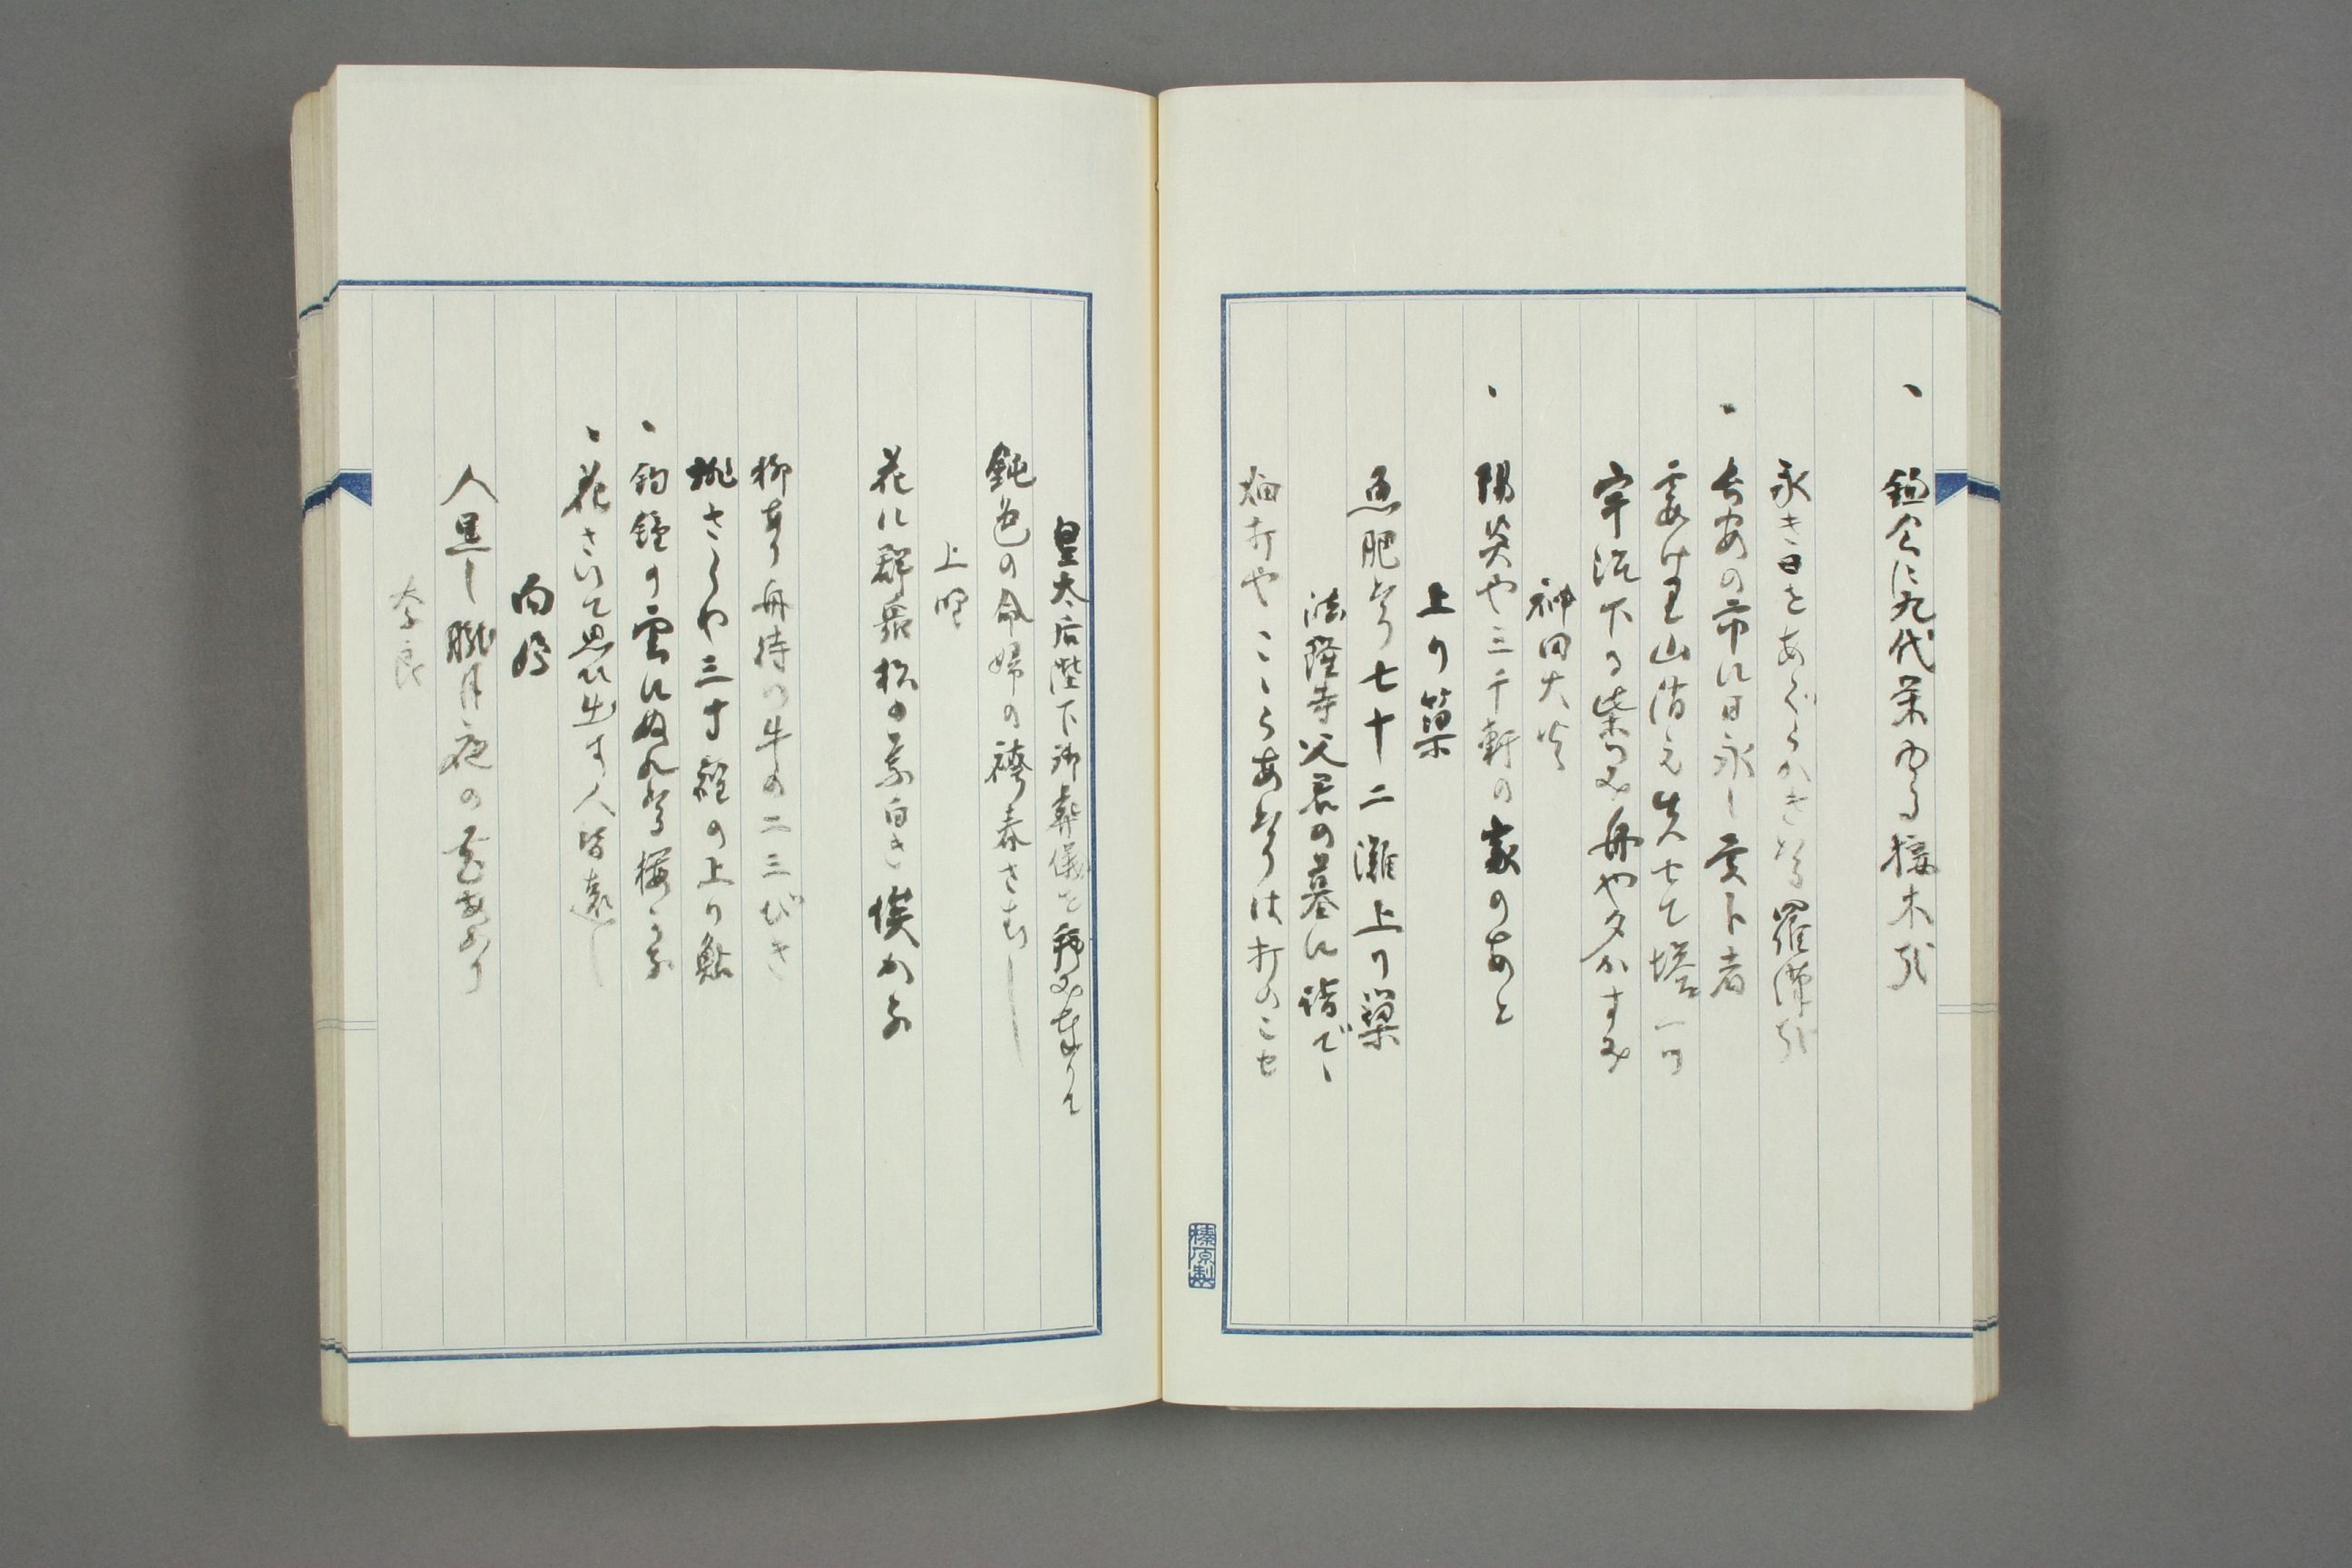 、鉢に九代栄ゆる接木哉
永き日をあぐらかきたる羅漢哉
、長安の市に日永し売卜者
霞けり山消え失せて塔一つ
宇治下る柴つみ舟や夕かすみ
神田大火
、陽炎や三千軒の家のあと
上り簗
魚肥えたり七十二灘上り簗
法隆寺父君の墓に詣でゝ
畑打やこゝらあたりは打のこせ
皇太后陛下御葬儀を拝み奉りて
鈍色の命婦の袴春さむし
上野
花に群衆松の葉白き埃かな
柳あり舟待つ牛の二三びき
桃さくや三寸程の上り鮎
、釣鐘の雲にぬれたる桜かな
、花さいて思ひ出す人皆遠し
向嶋
人黒し朧月夜の花あかり
奈良
榛原製